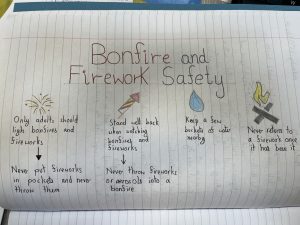 Bonfire and
Firework Safety
Only adults should
light bonfires and
fireworks
Never put fireworks
in pockets and never
throw them
Stand well back
when watching
bonfires and
fireworks
Never throw fireworks
or aerosols into a
bonfire
Keep a few
buckets of water
nearby
Never return to
a firework once
it has been lit